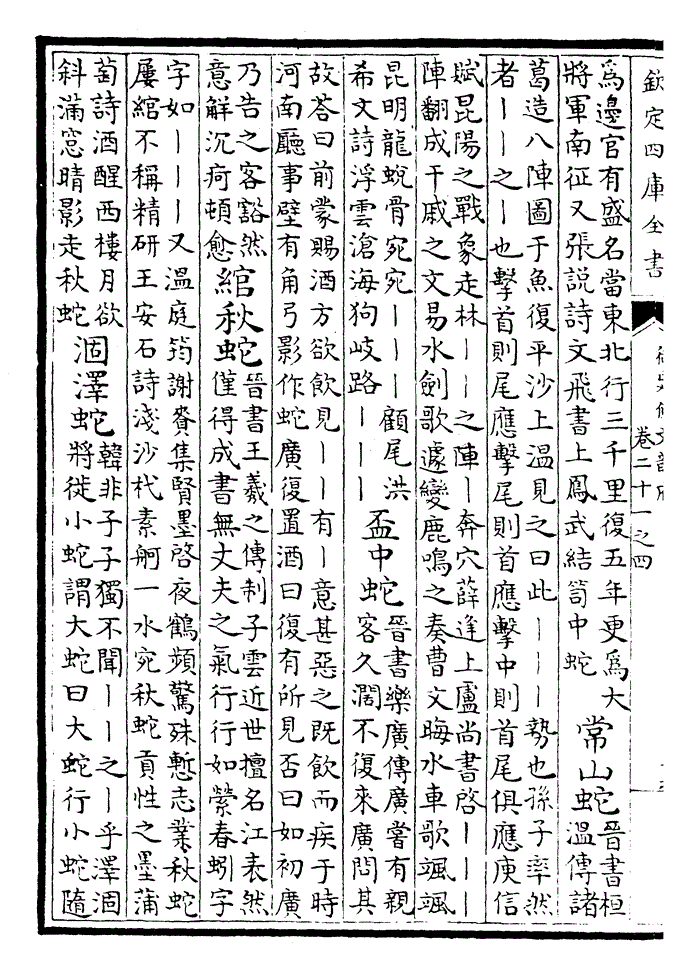 欽定四庫全書
卷二十一之四
為邊官有盛名當東北行三千里復五年更為大
將軍南征又張説詩文飛書上鳳武結笥中蛇
常山蛇
晉書桓
溫傳諸
葛造八陣圖于魚復平沙上溫見之曰此｜｜｜勢也孫子率然
者｜｜之｜也擊首則尾應擊尾則首應擊中則首尾俱應庾信
賦昆陽之戰象走林｜｜之陣｜奔穴薛逢上盧尚書啓｜｜｜
陣翻成干戚之文易水劍歌遽變鹿鳴之奏曹文晦水車歌颯颯
昆明龍蛻骨宛宛｜｜｜顧尾洪
希文詩浮雲滄海狗岐路｜｜｜
盃中蛇
晉書樂廣傳廣嘗有親
客久濶不復來廣問其
故答曰前蒙賜酒方欲飲見｜｜有｜意甚惡之既飲而疾于時
河南廳事壁有角弓影作蛇廣復置酒曰復有所見否曰如初廣
乃告之客豁然
意解沉疴頓愈
綰秋蛇
晉書王羲之傳制子雲近世擅名江表然
僅得成書無丈夫之氣行行如縈春蚓字
字如｜｜｜又溫庭筠謝賚集賢墨啓夜鶴頻驚殊慙志業秋蛇
屢綰不稱精研王安石詩淺沙杙素舸一水宛秋蛇貢性之墨蒲
萄詩酒醒西樓月欲
斜滿窻晴影走秋蛇
涸澤蛇
韓非子子獨不聞｜｜之｜乎澤涸
將徙小蛇謂大蛇曰大蛇行小蛇隨